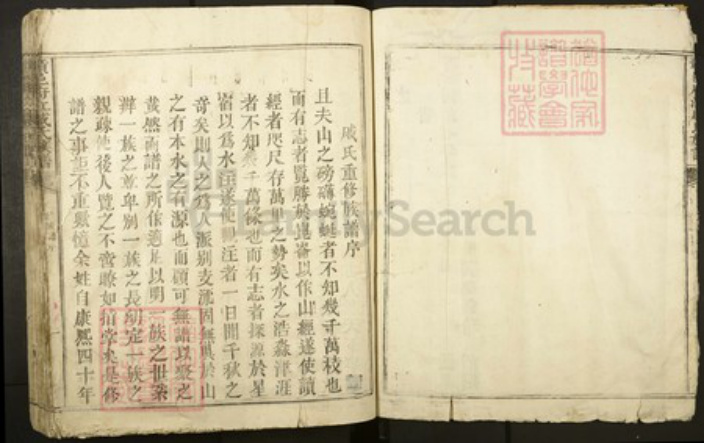 戚氏重修族譜序
且夫山之磅礴蜿蜒者不知幾千萬枝也
而有志者覽勝於崑崙以作山經遂使讀
經者咫尺存萬里之勢矣水之浩淼津涯
者不知幾千萬條也而有志者探源於星
宿以為水注遂使觀注者一日開千秋之
奇矣則人之為人派別支流固無異於山
之有本水之有源也而顧可無譜以聚之
哉然而譜之所係適足以明一族之世系
辨一族之尊卑別一族之長幼定一族之
親疎使後人覽之不啻瞭如指掌矣是修
譜之事詎不重歟憶余姓自康熙四十年
FamilySearch